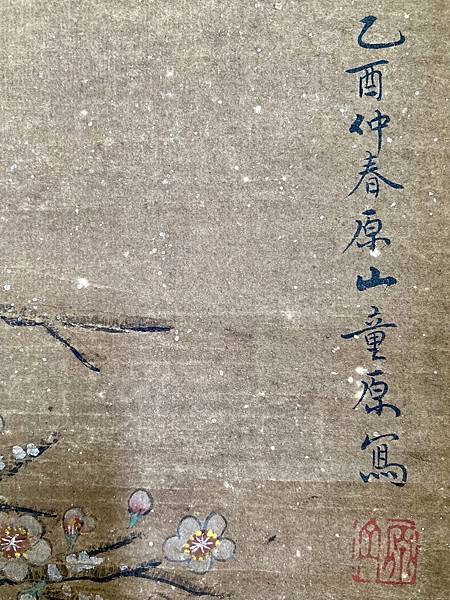 乙酉仲春原山童原寫